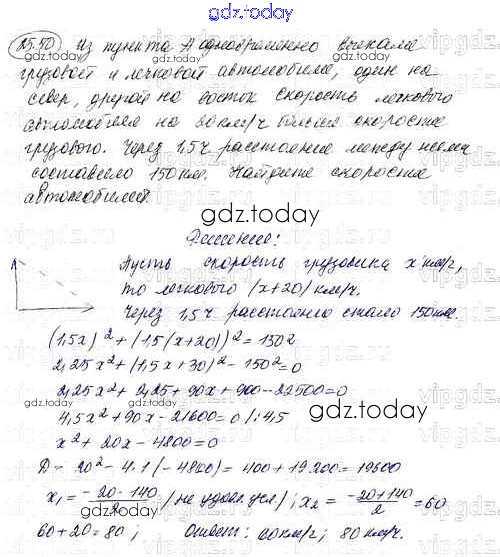 gdz.today
25.50 Из пункта А одновременно выехали
грузовой и легковой автомобили, один на
север, другой на восток скорость легкового
автомобиля на 20 км/ч больше скорости
грузового. Через 1,5 ч расстояние между ними
составляло 150 км. Найдите скорости
автомобилей.
gdz.today
Решение:
Пусть скорость грузовика x км/ч,
то легкового (x+20) км/ч.
Через 1,5 ч расстояние стало 150 км.
(1,5x)² + (1,5(x+20))² = 150²
2,25x² + (1,5x+30)² - 150² = 0
2,25x² + 2,25 + 90x + 900 - 22500 = 0
gdz.today
4,5x² + 90x - 21600 = 0 /:4,5
gdz.today
x² + 20x - 4800 = 0
D = 20² - 4·1(-4800) = 400 + 19200 = 19600
x₁ = (-20-140)/2 /не удовл. усл/; x₂ = (-20+140)/2 = 60
60+20=80; Ответ: 60 км/ч; 80 км/ч.
gdz.today